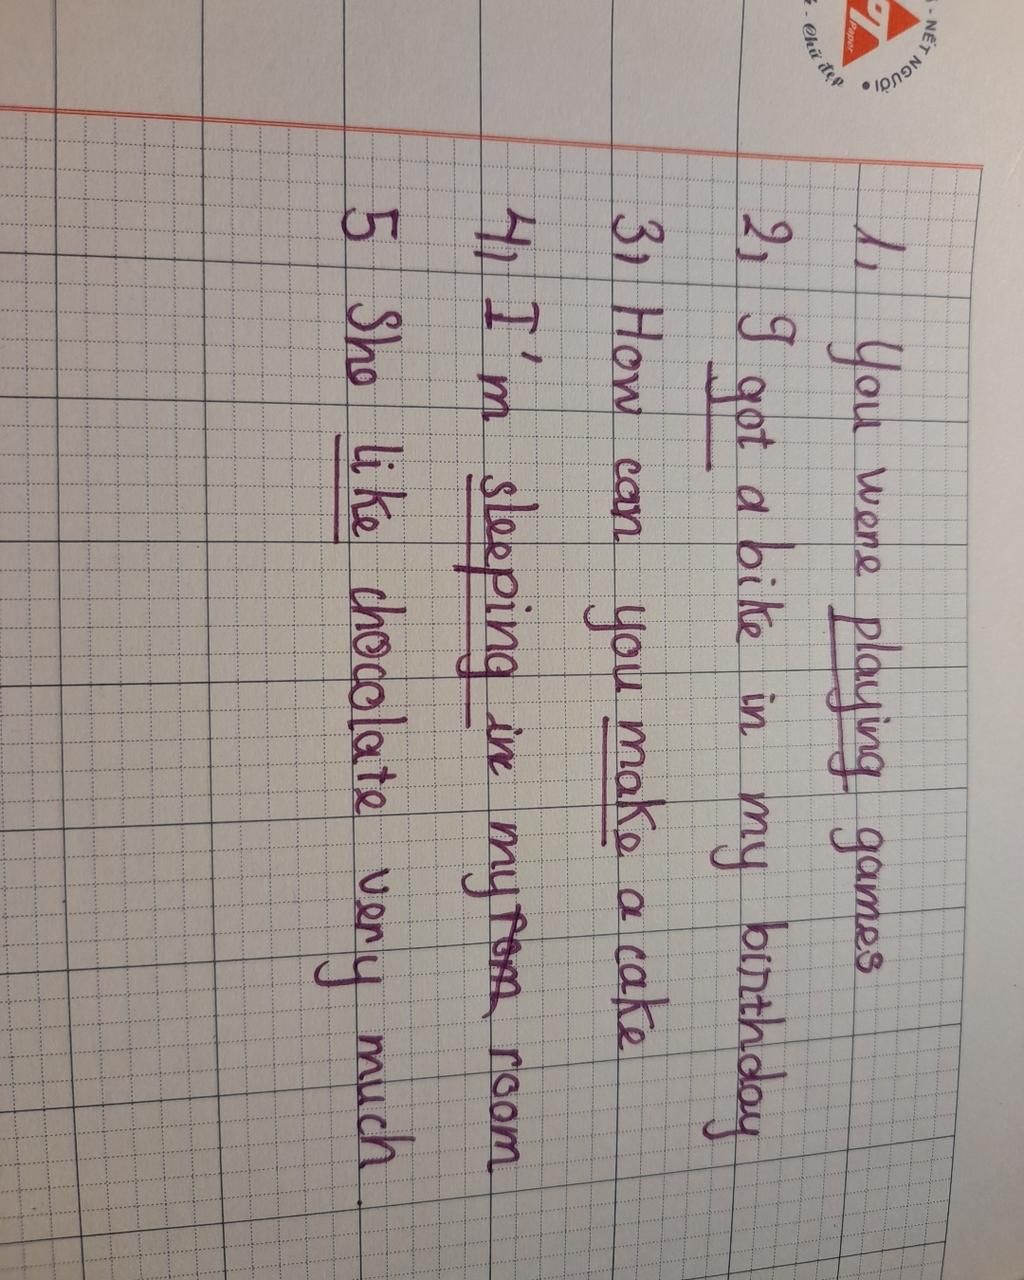 - NẾT NGƯỜI •
- Chữ đẹp
Paper
1, You were playing games
2, I got a bike in my birthday
3, How can you make a cake
4, I'm sleeping in my rom room
5 She like chocolate very much.